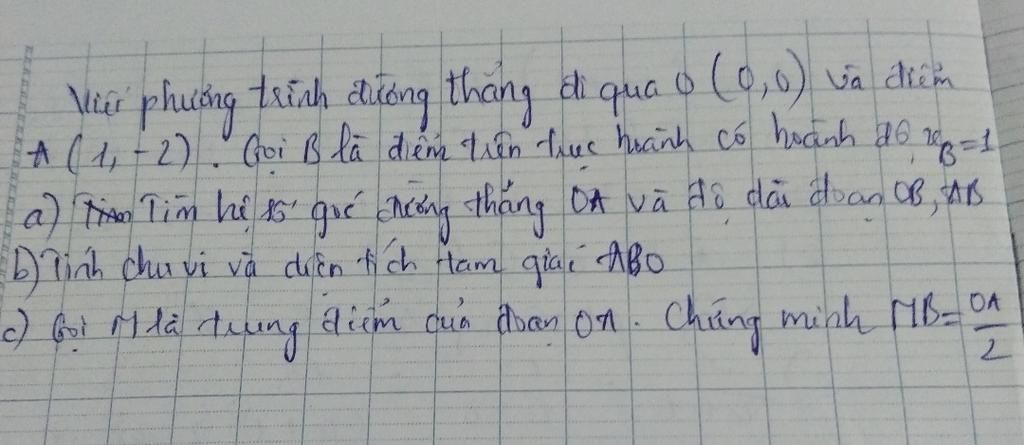 Viết phương trình đường thẳng đi qua O (0,0) và điểm
A (1, -2). Gọi B là điểm trên trục hoành có hoành độ x_B = 1
a) Tìm hệ số góc đường thẳng OA và độ dài đoạn OB, AB
b) Tính chu vi và diện tích tam giác ABO
c) Gọi M là trung điểm của đoạn OA. Chứng minh MB = OA/2